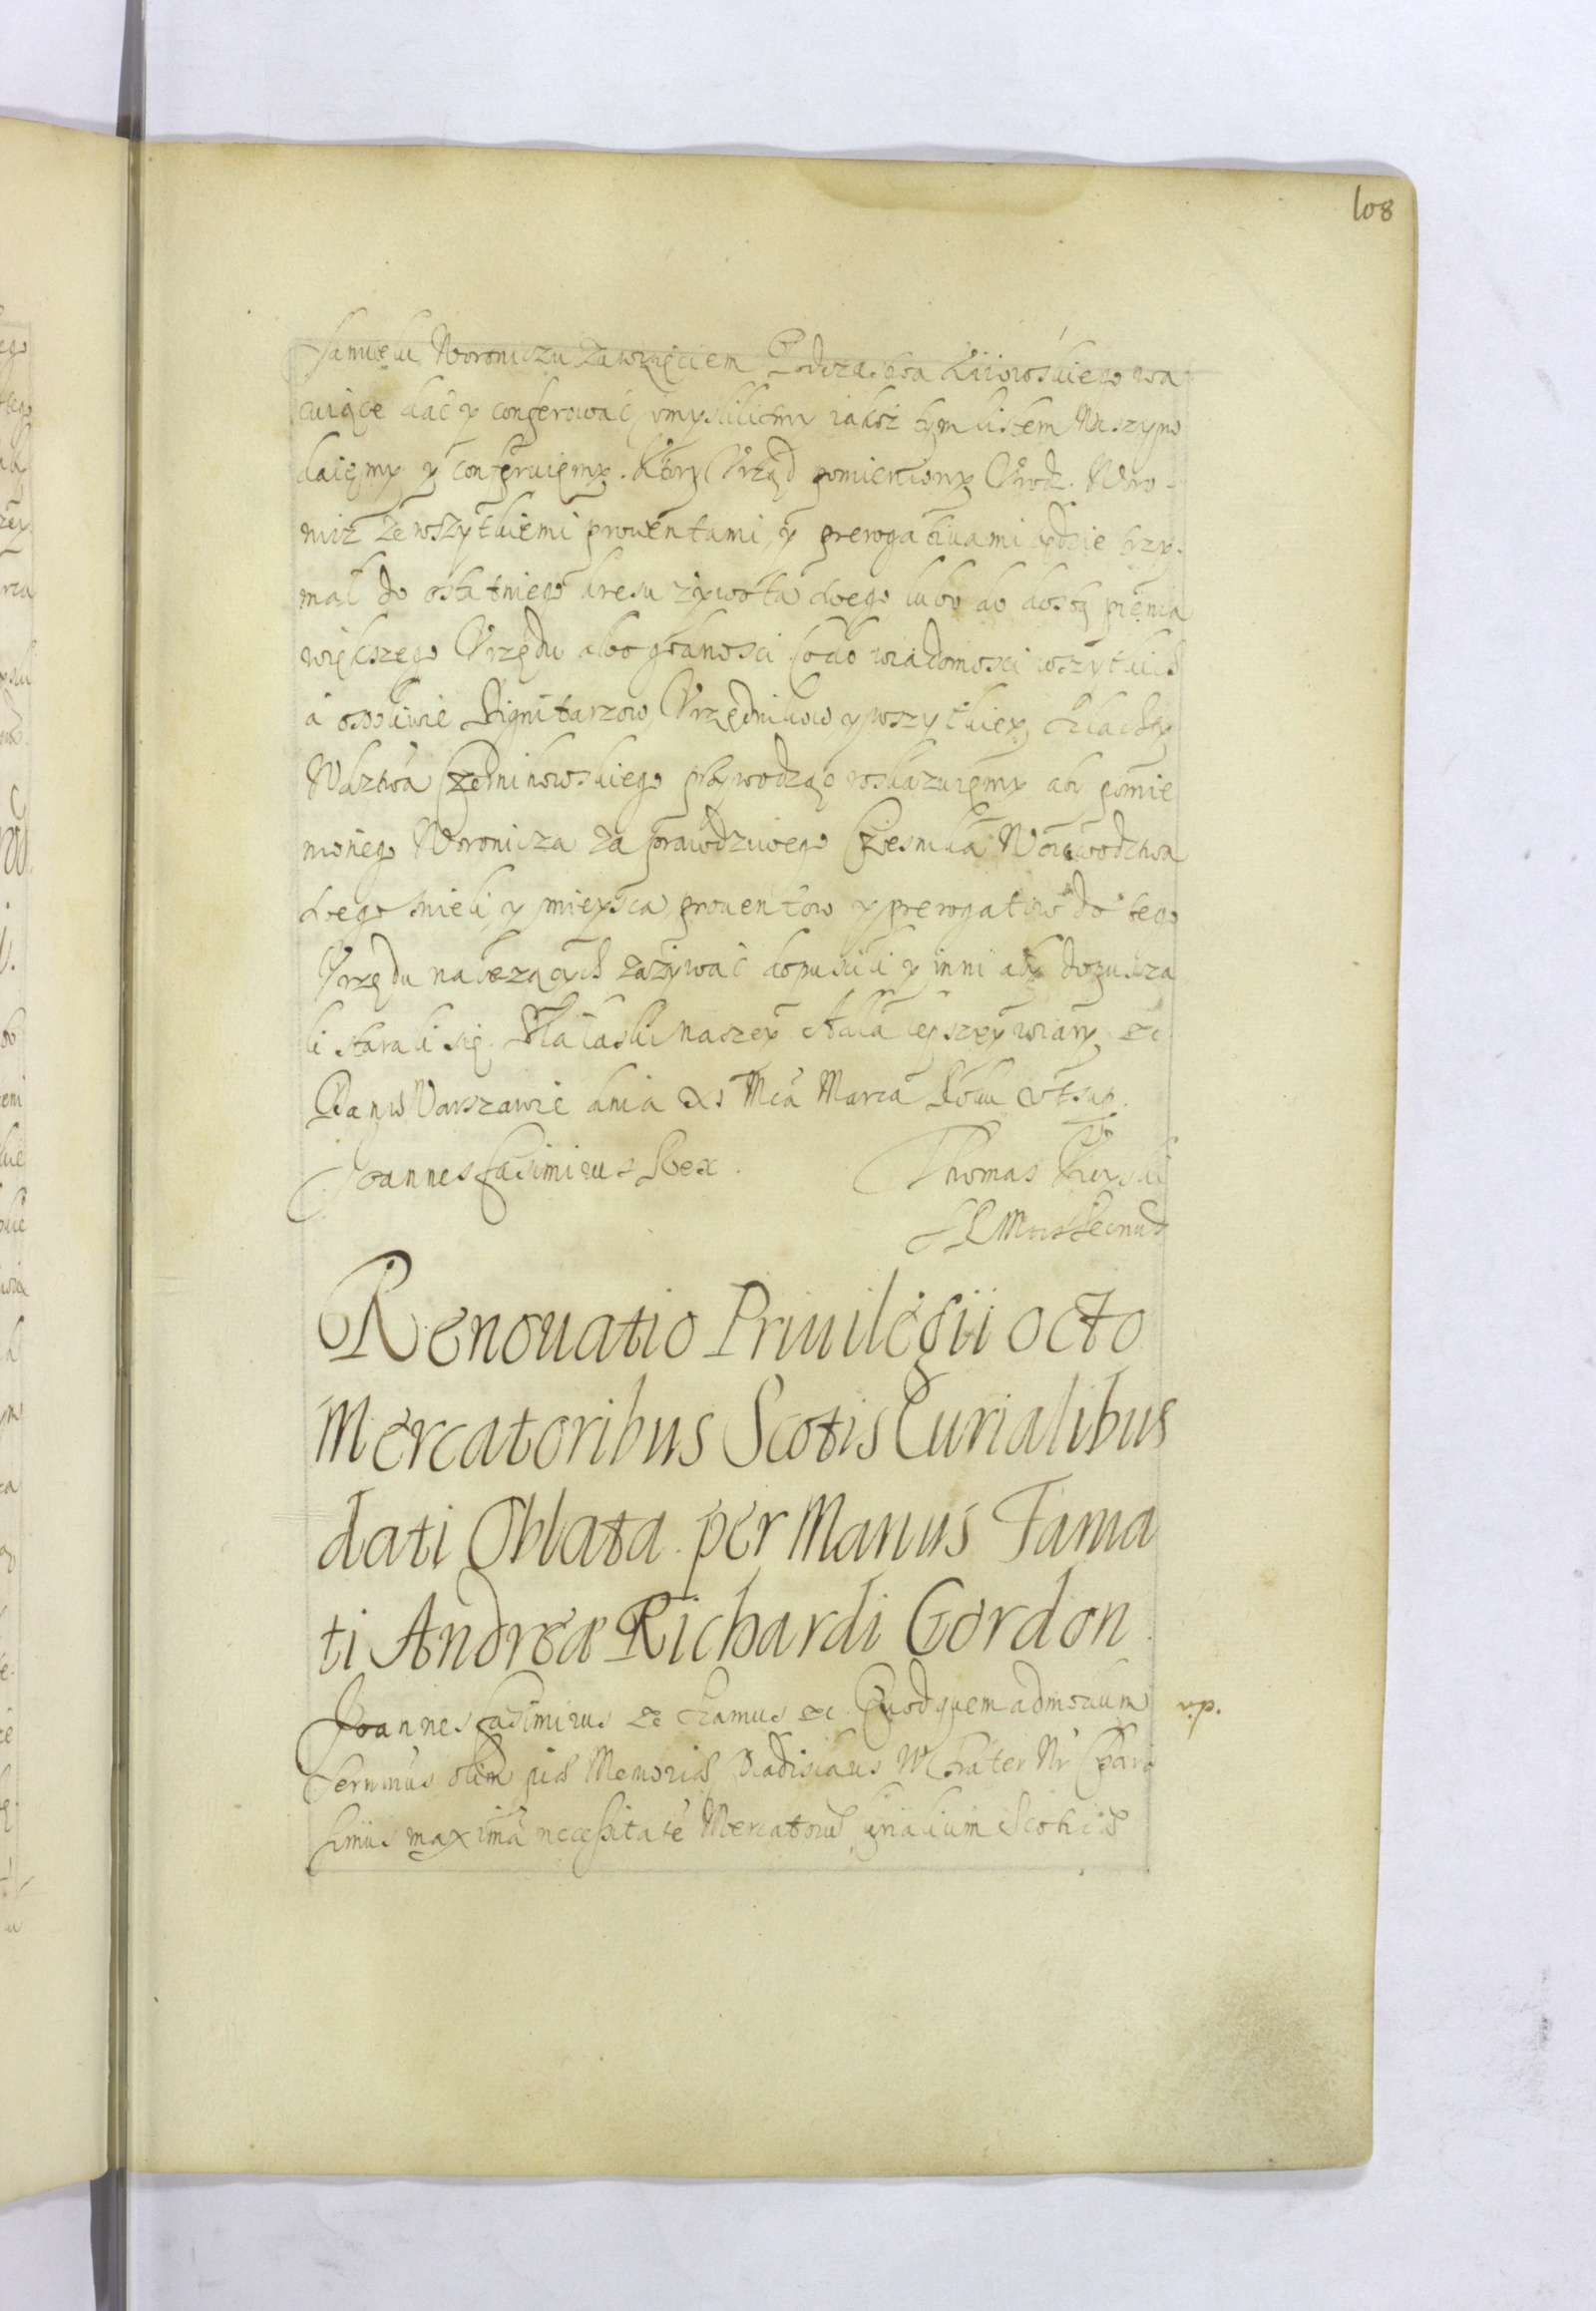 108
Samuelu Woroniczu za wzięciem Podczastwa Kiiowskiego wa
cuiące dać y conferować umyslilismy iakoż tym listem Naszym
daięmy y conferuięmy. Ktory Urząd pomieniony Urodz. Woro-
nicz ze wszytkiemi prouentami, y prerogatiuami będzie trzy-
mał do ostatniego kresu żywota swego lubo do dostąpienia
większego Urzędu albo godnosci Co do wiadomosci wszytkich
a osobliwie Dignitarzow, Urzędnikow y wszytkiey Szlachty
Wdztwa Czernihowskiego przywodząc roskazuięmy aby pomie
nionego Woronicza za prawdziwego Czesnika Woiewodztwa
swego mieli, y mieysca, prouentow y prerogatiw do tego
Urzędu należących zażywać dopuscili y inni aby dopuszcza
li starali się. Dla łaski naszey Dla lepszey wiary &c
Dan w Warszawie dnia XI Mca Marca Roku ut sup.
Joannes Casimirus Rex.
Thomas
SRMttis Secrius
Renouatio Priuilegii octo
Mercatoribus Scotis Curialibus
dati Oblata per Manus Fama
ti Andreæ Richardi Gordon
Joannes Casimirus &c Sřamus &c. Quod quem admodum
Serenmus olim piæ Memoriæ Vladislaus IV frater Nr Chari
simus maxima necessitate Mercatorum Curialium Scoticæ